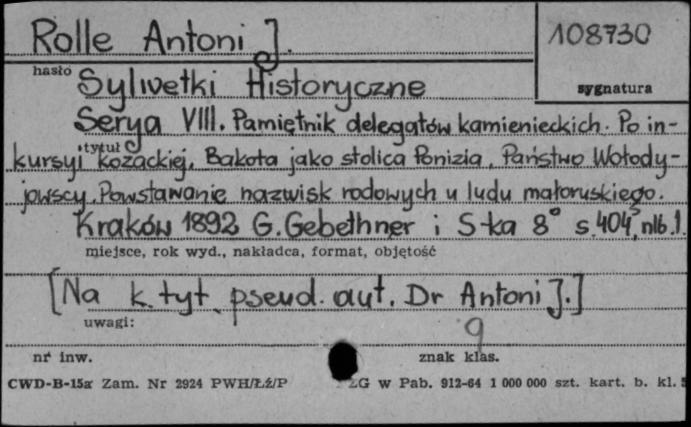 Rolle Antoni J.
108730
hasło
Sylwetki Historyczne
sygnatura
Serya VIII. Pamiętnik delegatów kamienieckich. Po in-
tytuł
kursyi kozackiej. Bakota jako stolica Ponizia. Państwo Wołody-
jowscy. Powstawanie nazwisk rodowych u ludu małoruskiego.
Kraków 1892 G. Gebethner i S-ka 8° s. 404, nlb. 1.
miejsce, rok wyd., nakładca, format, objętość
[Na k. tyt. pseud. aut. Dr Antoni J.]
uwagi:
9
nr inw.
znak klas.
CWD-B-15a Zam. Nr 2924 PWH/Łź/P
ZG w Pab. 912-64 1 000 000 szt. kart. b. kl.